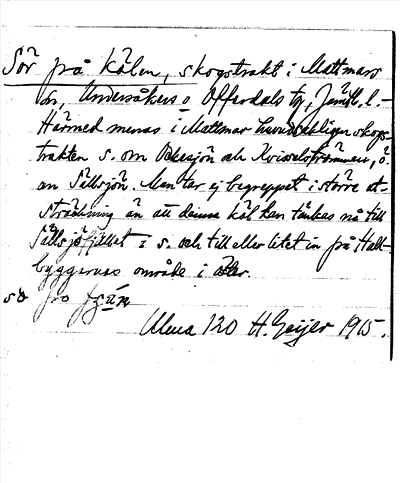 Sör på Kölen, skogstrakt i Mattmars
sn, Undersåkers o Offerdals tg, Jämtl. l. –
Härmed menas i Mattmar huvudsakligen skogs-
trakten s. om Ockesjön och Kvisselströmmen, ö.
an Sällsjön. Man tar ej begreppet i större ut-
sträckning än att denna köl kan tänkas nå till
Sällsjöfjället i s. och till eller litet in på Hall-
byggarnas område i
så
Ulma 120 H. Geijer 1915.